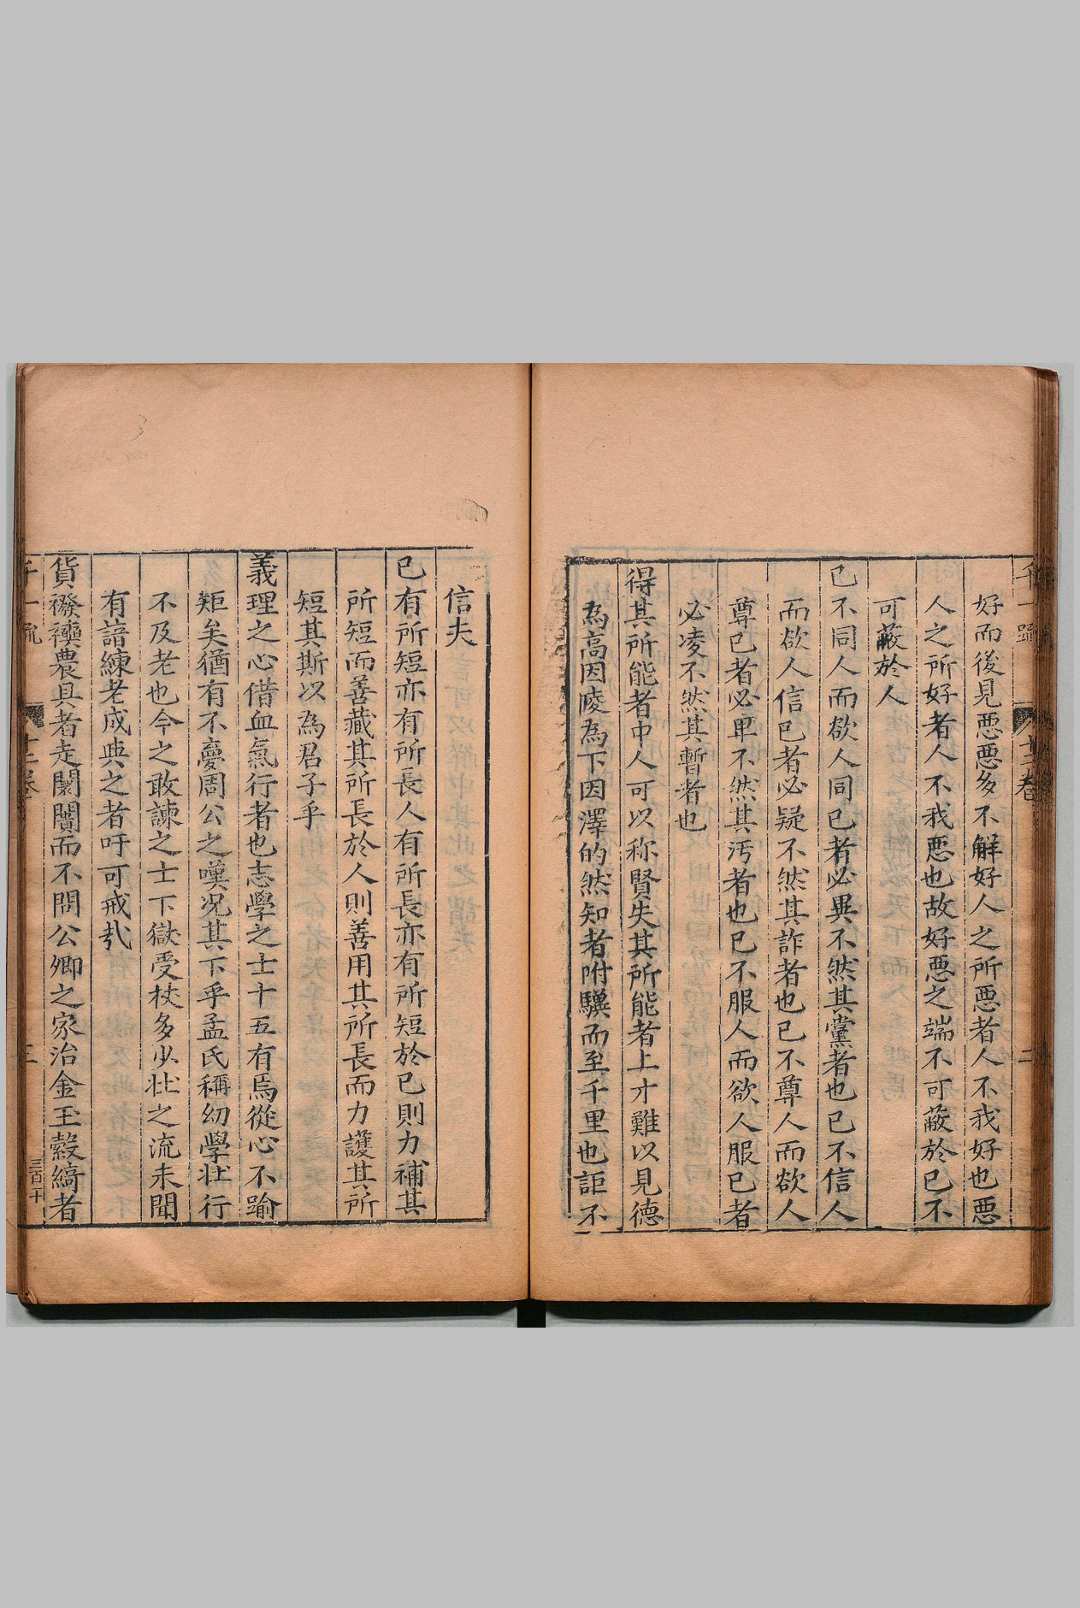 千一疏 十二卷 二
好而後見惡惡多不解好人之所惡者人不我好也惡
人之所好者人不我惡也故好惡之端不可蔽於已不
可蔽於人
已不同人而欲人同已者必異不然其黨者也已不信人
而欲人信已者必疑不然其詐者也已不尊人而欲人
尊已者必卑不然其汚者也已不服人而欲人服已者
必凌不然其暫者也
得其所能者中人可以称賢失其所能者上才難以見德
為高因陵為下因澤的然知者附驥而至千里也詎不
信夫
已有所短亦有所長人有所長亦有所短於已則力補其
所短而善藏其所長於人則善用其所長而力護其所
短其斯以為君子乎
義理之心借血氣行者也志學之士十五有焉從心不踰
矩矣猶有不憂周公之嘆况其下乎孟氏稱幼學壯行
不及老也今之敢諫之士下獄受杖多少壯之流未聞
有諳練老成典之者吁可戒㢤
貨襏襫農具者走闤闠而不問公卿之家治金玉縠綺者
千一疏 十二卷 三 三百十